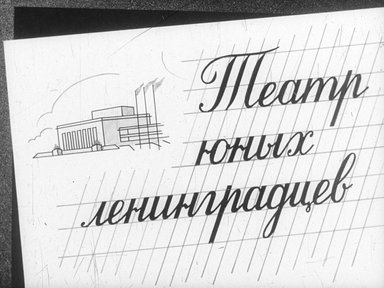 Театр
юных
ленинградцев